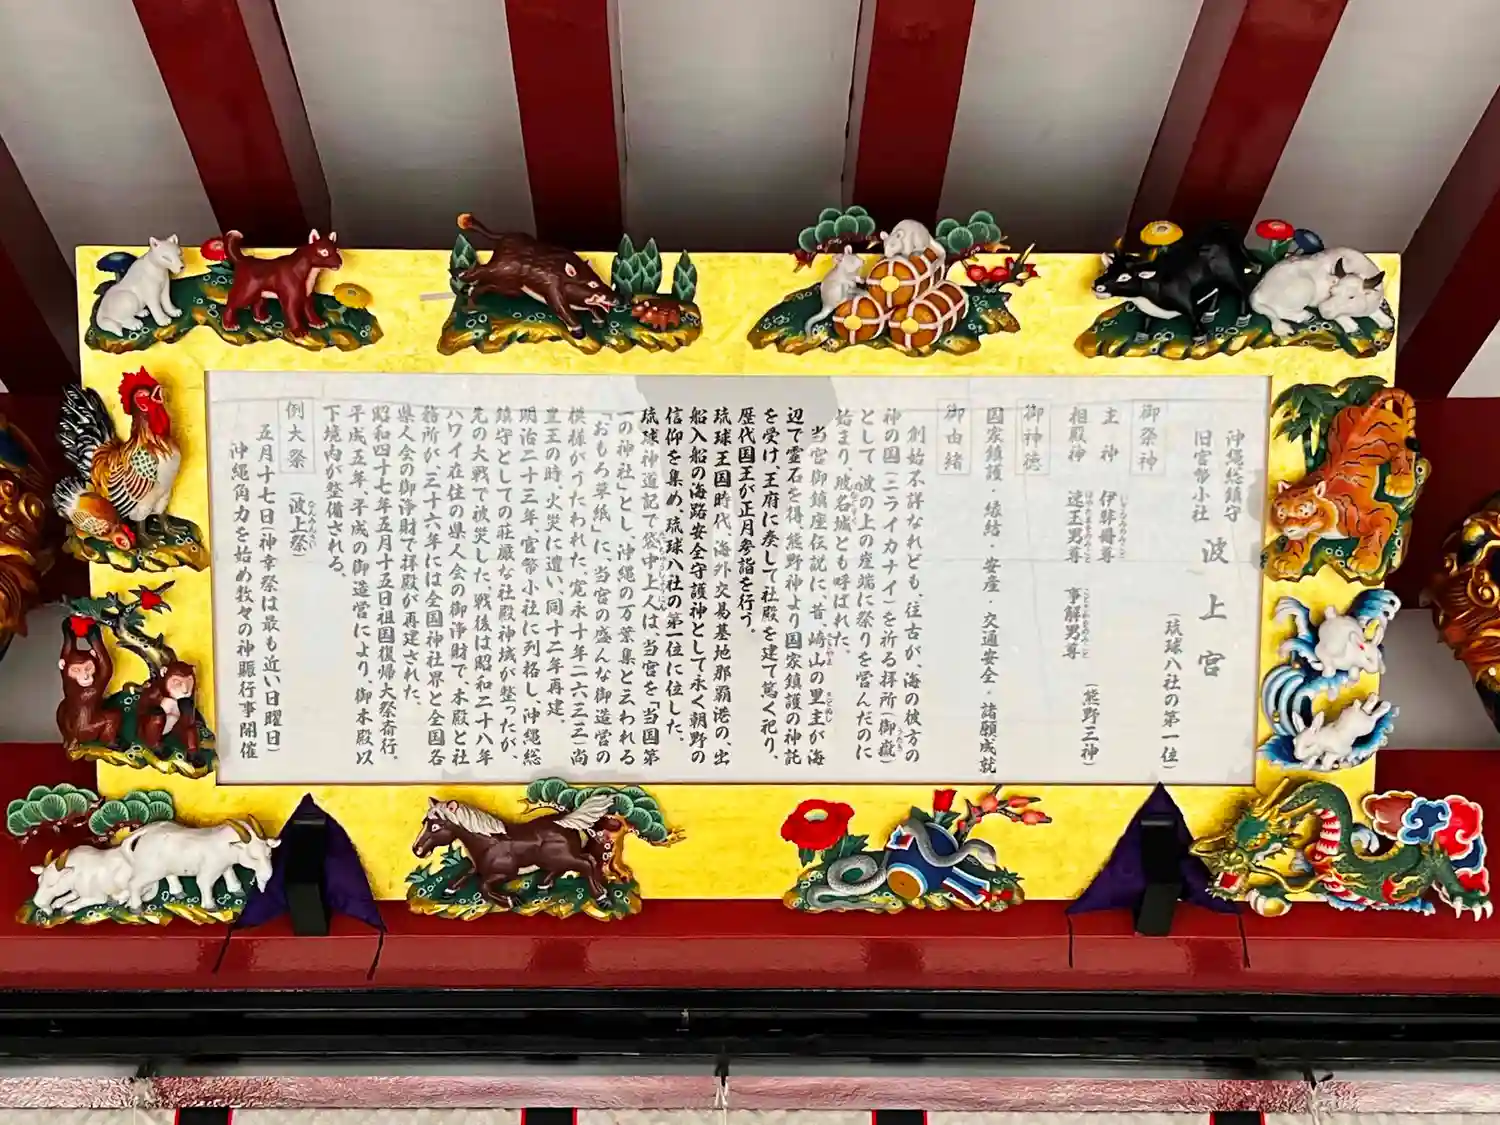 沖縄総鎮守
旧官幣小社
波上宮
(琉球八社の第一位)
御祭神
主神 伊弉冊尊
相殿神 速玉男尊 事解男尊 (熊野三神)
御神徳
国家鎮護・縁結・安産・交通安全・諸願成就
御由緒
創始不詳なれども、往古が、海の彼方の
神の国(ニライカナイ)を祈る拝所(御嶽)
として、波の上の崖端に祭りを営んだのに
始まり、波名城とも呼ばれた。
当宮御鎮座伝説に、昔崎山の里主が海
辺で霊石を得、熊野神より国家鎮護の神託
を受け、王府に奏して社殿を建て篤く祀り、
歴代国王が正月参詣を行う。
琉球王国時代、海外交易基地那覇港の、出
船入船の海路安全守護神として永く朝野の
信仰を集め、琉球八社の第一位に位した。
琉球神道記で袋中上人は当宮を「当国第
一の神社」とし、沖縄の万葉集と云われる
「おもろ草紙」に、当宮の盛んな御造営の
模様がうたわれた。寛永十年(一六三三)尚
豊王の時、火災に遭い、同十二年再建。
明治二十三年、官幣小社に列格し、沖縄総
鎮守としての荘厳な社殿神域が整ったが、
先の大戦で被災した。戦後は昭和二十八年
ハワイ在住の県人会の御浄財で、本殿と社
務所が、三十六年には全国神社界と全国各
県人会の御浄財で拝殿が再建された。
昭和四十七年五月十五日祖国復帰大祭斎行。
平成五年、平成の御造営により、御本殿以
下境内が整備される。
例大祭 (波上祭)
五月十七日(神幸祭は最も近い日曜日)
沖縄角力を始め数々の神賑行事開催